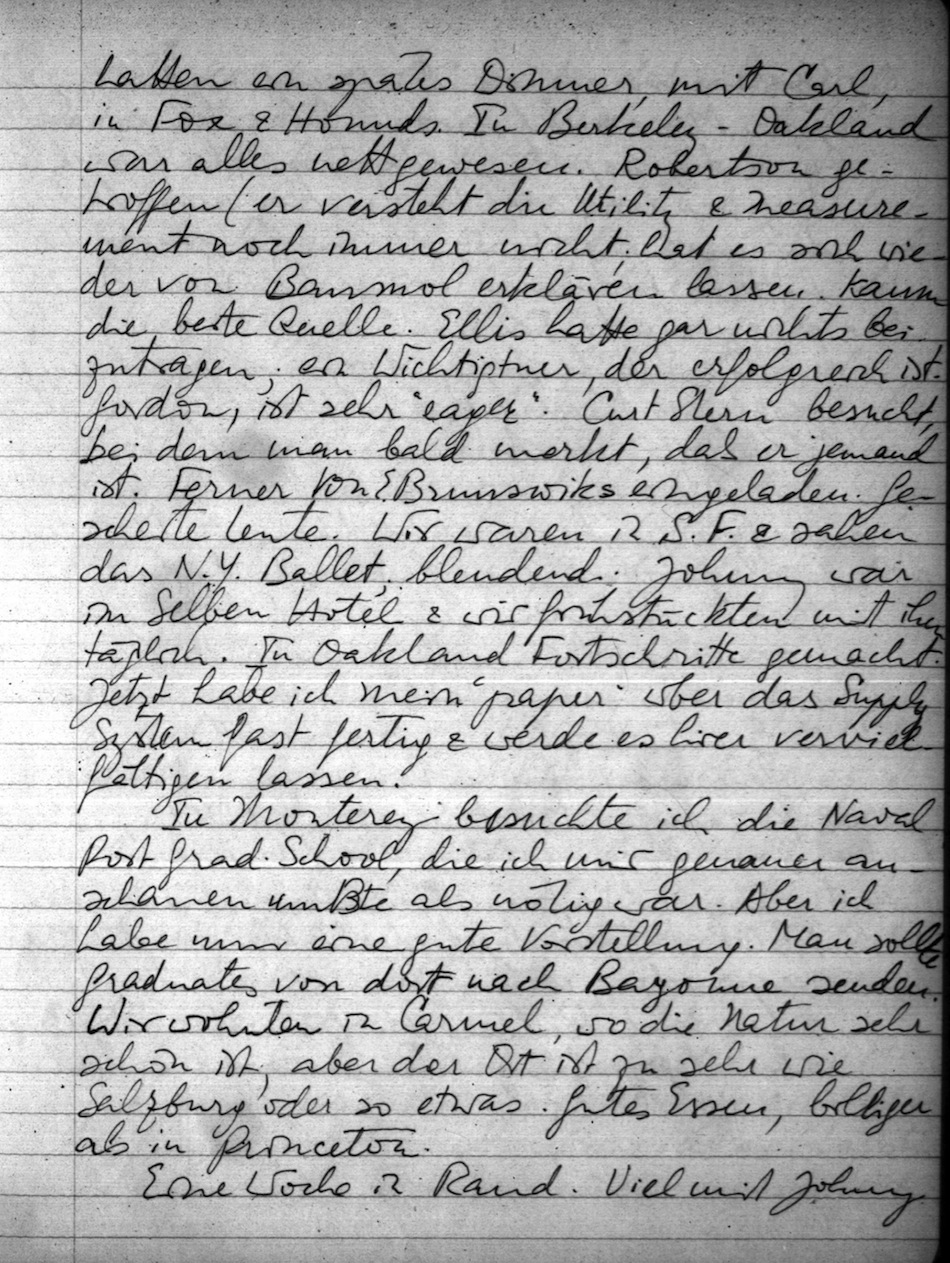 hatten ein spätes Dinner, mit Carl,
in Fox & Hounds. In Berkeley - Oakland
war alles nett gewesen. Robertson ge-
troffen (er versteht die Utility & measure-
ment noch immer nicht; hat es sich wie-
der von Baumol erklären lassen. Kaum
die beste Quelle. Ellis hatte gar nichts bei-
zutragen; ein Wichtigtuer, der erfolgreich ist.
Gordon, ist sehr "eager". Curt Stern besucht,
bei dem man bald merkt, daß er jemand
ist. Ferner von E Brunswiks eingeladen. Ge-
scheite Leute. Wir waren in S.F. & sahen
das N.Y. Ballet, blendend. Johnny war
im selben Hotel & wir frühstückten mit ihm
täglich. In Oakland Fortschritte gemacht.
Jetzt habe ich mein "paper" über das Supply
System fast fertig & werde es hier verviel-
fältigen lassen.
In Monterey besuchte ich die Naval
Post Grad. School, die ich mir genauer an-
schauen mußte als nötig war. Aber ich
habe nun eine gute Vorstellung. Man sollte
graduates von dort nach Bayonne senden.
Wir wohnten in Carmel, wo die Natur sehr
schön ist, aber der Ort ist zu sehr wie
Salzburg oder so etwas. Gutes Essen, billiger
als in Princeton.
Eine Woche in Rand. Viel mit Johnny